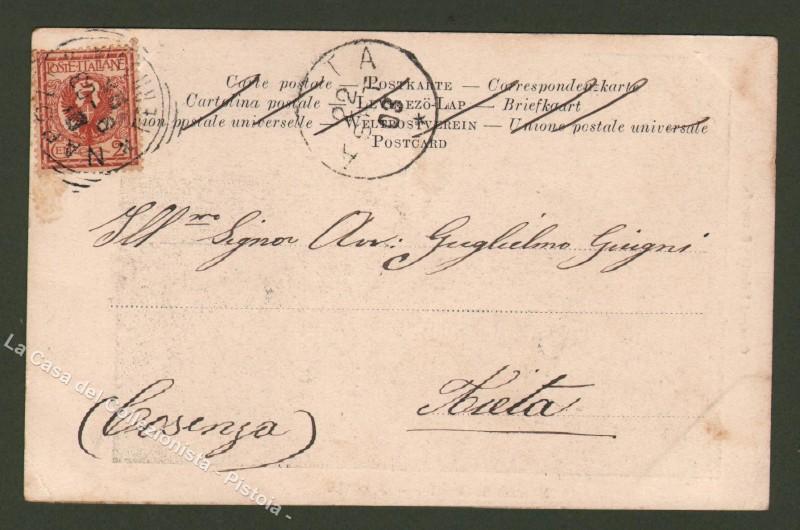 POSTE ITALIANE
Carte postale — Postkarte — Correspondenzkarte
Cartolina postale — Levelező-Lap — Briefkaart
Union postale universelle — Weltpostverein — Unione postale universale
Postcard
22
08
Ill.mo Signor Avv: Guglielmo Giugni
(Cosenza) Aieta
La Casa del Collezionista - Pistoia -